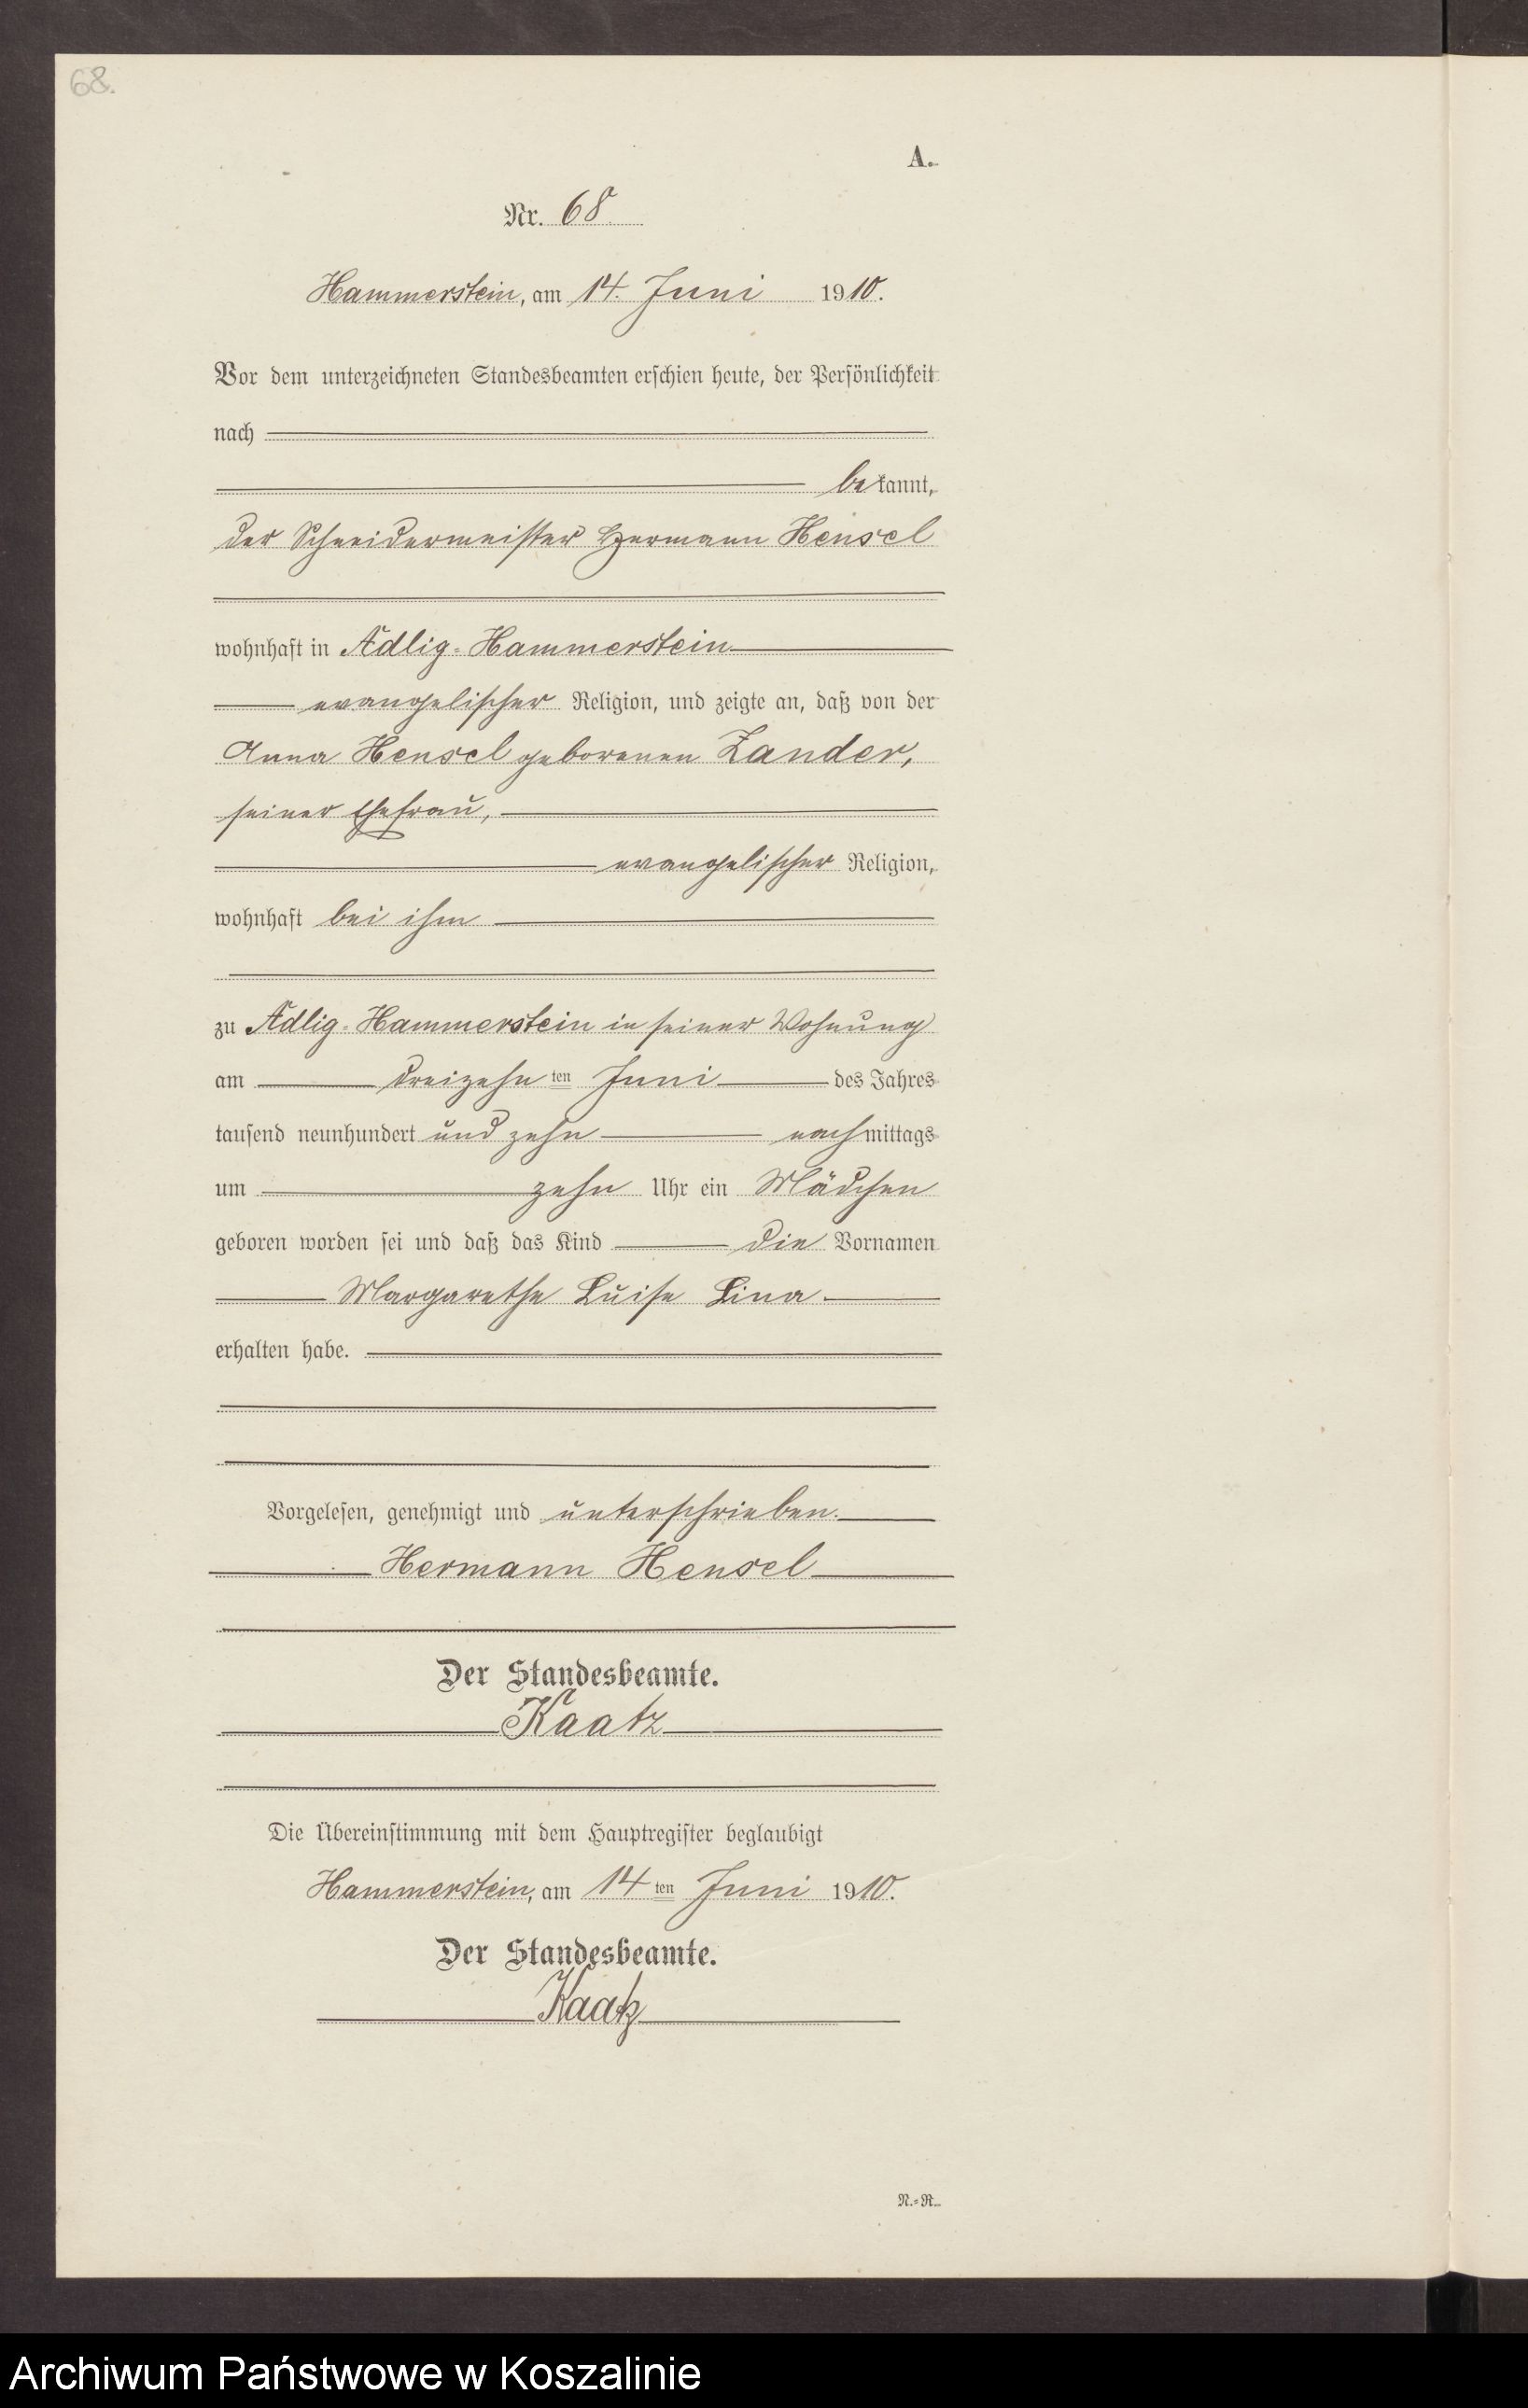 68.
A.
Nr. 68
Hammerstein, am 14. Juni 1910.
Vor dem unterzeichneten Standesbeamten erschien heute, der Persönlichkeit
nach
bekannt,
der Schneidermeister Hermann Hensel
wohnhaft in Adlig-Hammerstein
evangelischer Religion, und zeigte an, daß von der
Anna Hensel geborenen Zander,
seiner Ehefrau,
evangelischer Religion,
wohnhaft bei ihm
zu Adlig-Hammerstein in seiner Wohnung
am dreizehnten Juni des Jahres
tausend neunhundert und zehn nachmittags
um zehn Uhr ein Mädchen
geboren worden sei und daß das Kind die Vornamen
Margarethe Luise Lina
erhalten habe.
Vorgelesen, genehmigt und unterschrieben.
Hermann Hensel
Der Standesbeamte.
Kaatz
Die Übereinstimmung mit dem Hauptregister beglaubigt
Hammerstein, am 14ten Juni 1910.
Der Standesbeamte.
Kaatz
N.-R.
Archiwum Państwowe w Koszalinie